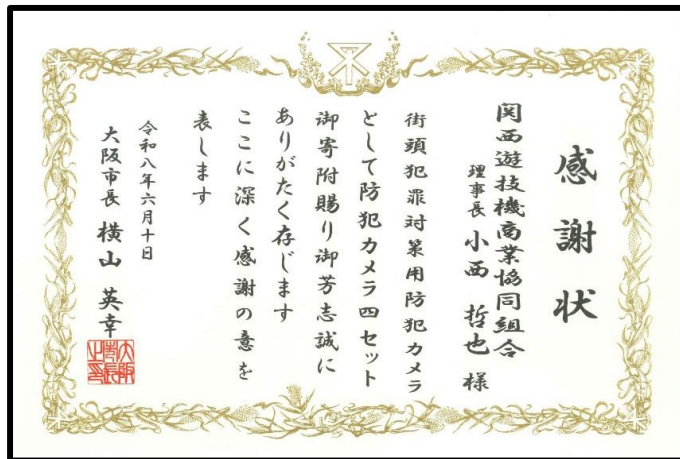 感謝状
関西遊技機商業協同組合
理事長 小西 哲也 様
街頭犯罪対策用防犯カメラ
として防犯カメラ四セット
御寄附賜り御芳志誠に
ありがたく存じます
ここに深く感謝の意を
表します
令和八年六月十日
大阪市長 横山 英幸
大阪市長之印